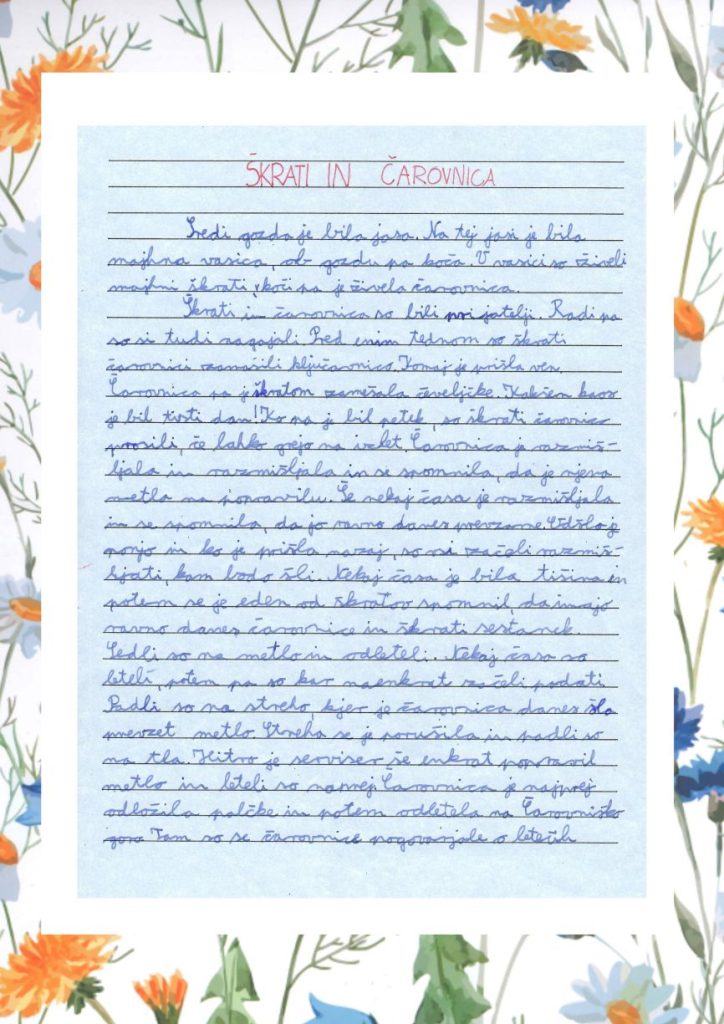 ŠKRATI IN ČAROVNICA
Sredi gozda je bila jasa. Na tej jasi je bila
majhna vasica, ob gozdu pa koča. V vasici so živeli
majhni škrati, v koči pa je živela čarovnica.
Škrati in čarovnica so bili prijatelji. Radi pa
so si tudi nagajali. Pred enim tednom so škrati
čarovnici zamašili ključavnico. Komaj je prišla ven.
Čarovnica pa je škratom zamešala čeveljčke. Kakšen kaos
je bil tisti dan! Ko pa je bil petek, so škrati čarovnico
prosili, če lahko grejo na izlet. Čarovnica je razmiš-
ljala in razmišljala in se spomnila, da je njena
metla na popravilu. Še nekaj časa je razmišljala
in se spomnila, da jo ravno danes prevzame. Odšla je
ponjo in ko je prišla nazaj, so vsi začeli razmiš-
ljati, kam bodo šli. Nekaj časa je bila tišina in
potem se je eden od škratov spomnil, da imajo
ravno danes čarovnice in škrati sestanek.
Sedli so na metlo in odleteli. Nekaj časa so
leteli, potem pa so kar naenkrat začeli padati.
Padli so na streho, kjer je čarovnica danes šla
prevzet metlo. Streha se je porušila in padli so
na tla. Hitro je serviser še enkrat popravil
metlo in leteli so naprej. Čarovnica je najprej
odložila palčke in potem odletela na Čarovniško
goro. Tam so se čarovnice pogovarjale o letečih